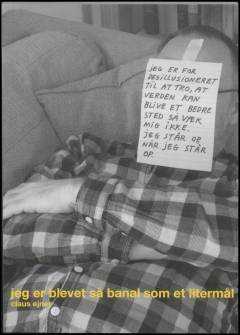 jEG ER FOR
DESILLUSIONERET
TIL AT TRO, AT
VERDEN KAN
BLIVE ET BEDRE
STED SÅ VÆK
MIG IKKE.
JEG STÅR OP,
NÅR JEG STÅR
OP.
jeg er blevet så banal som et litermål
claus ejner